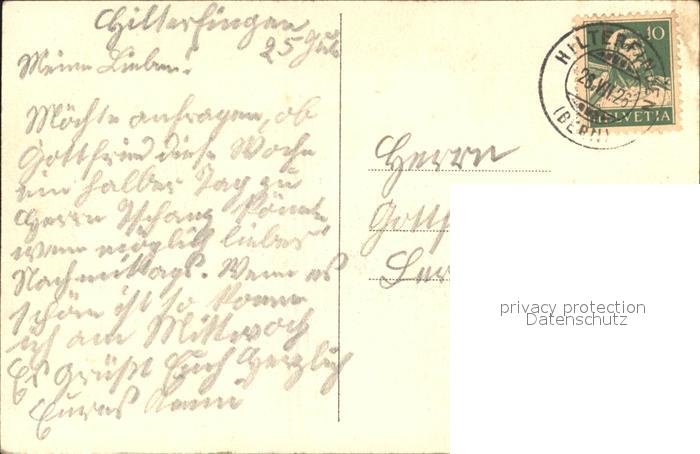 Hilterfingen
25 Juli
Meine Lieben!
Möchte anfragen, ob
Gottfried diese Woche
ein halber Tag zu
Herrn Tschanz könnte
wenn möglich lieber
Nachmittags. Wenn es
schön ist so komme
ich am Mittwoch
Es grüßt Euch herzlich
Eures
Herrn
10
HELVETIA
HILTERFINGEN
26.VII.26
(BERN)
privacy protection
Datenschutz